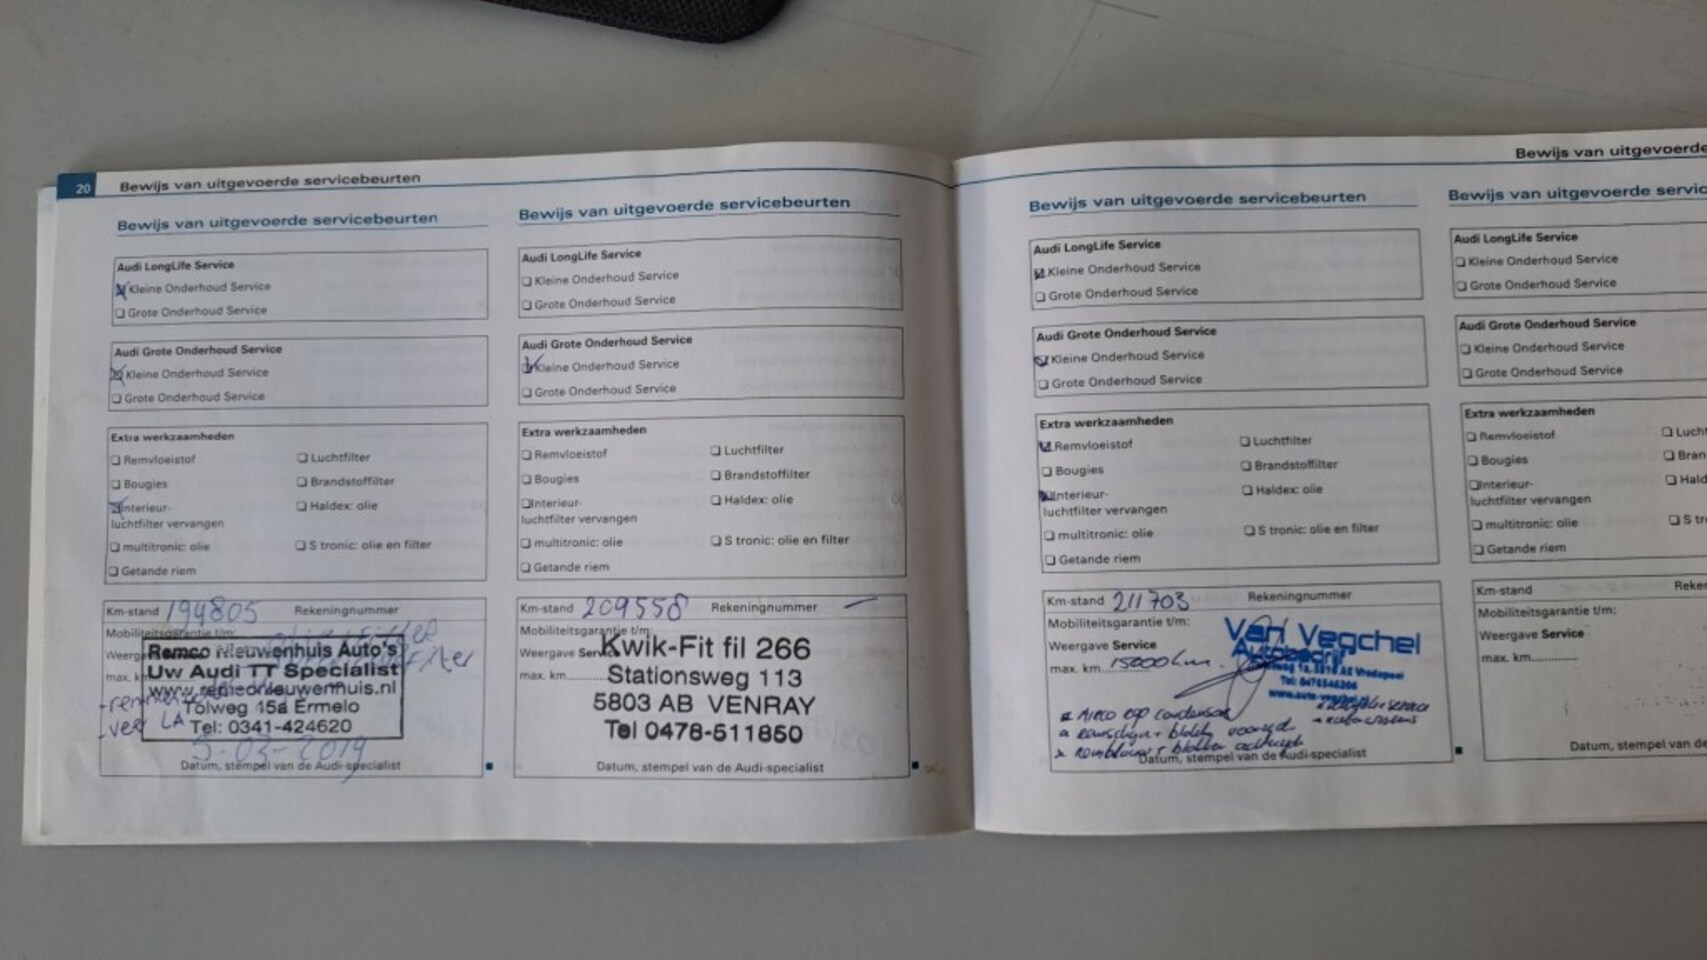 20 Bewijs van uitgevoerde servicebeurten
Bewijs van uitgevoerde servicebeurten
Audi LongLife Service
Kleine Onderhoud Service
Grote Onderhoud Service
Audi Grote Onderhoud Service
Kleine Onderhoud Service
Grote Onderhoud Service
Extra werkzaamheden
Remvloeistof Luchtfilter
Bougies Brandstoffilter
Interieur- Haldex: olie
luchtfilter vervangen
multitronic: olie S tronic: olie en filter
Getande riem
Km-stand 194805 Rekeningnummer
Mobiliteitsgarantie t/m:
Remco Nieuwenhuis Auto's
Uw Audi TT Specialist
www.remconieuwenhuis.nl
Tolweg 15a Ermelo
Tel: 0341-424620
5-03-2019
Datum, stempel van de Audi-specialist
Bewijs van uitgevoerde servicebeurten
Audi LongLife Service
Kleine Onderhoud Service
Grote Onderhoud Service
Audi Grote Onderhoud Service
Kleine Onderhoud Service
Grote Onderhoud Service
Extra werkzaamheden
Remvloeistof Luchtfilter
Bougies Brandstoffilter
Interieur- Haldex: olie
luchtfilter vervangen
multitronic: olie S tronic: olie en filter
Getande riem
Km-stand 209558 Rekeningnummer
Mobiliteitsgarantie t/m:
Weergave Service
max. km.
Kwik-Fit fil 266
Stationsweg 113
5803 AB VENRAY
Tel 0478-511850
Datum, stempel van de Audi-specialist
Bewijs van uitgevoerde
Bewijs van uitgevoerde servicebeurten
Audi LongLife Service
Kleine Onderhoud Service
Grote Onderhoud Service
Audi Grote Onderhoud Service
Kleine Onderhoud Service
Grote Onderhoud Service
Extra werkzaamheden
Remvloeistof Luchtfilter
Bougies Brandstoffilter
Interieur- Haldex: olie
luchtfilter vervangen
multitronic: olie S tronic: olie en filter
Getande riem
Km-stand 211703 Rekeningnummer
Mobiliteitsgarantie t/m:
Weergave Service
max. km. 15000 km.
Van Vegchel
Autobedrijf
Datum, stempel van de Audi-specialist
Bewijs van uitgevoerde servic
Audi LongLife Service
Kleine Onderhoud Service
Grote Onderhoud Service
Audi Grote Onderhoud Service
Kleine Onderhoud Service
Grote Onderhoud Service
Extra werkzaamheden
Remvloeistof Lucht
Bougies Bran
Interieur- Hald
luchtfilter vervangen
multitronic: olie S tr
Getande riem
Km-stand Reker
Mobiliteitsgarantie t/m:
Weergave Service
max. km.
Datum, stempel van de Au